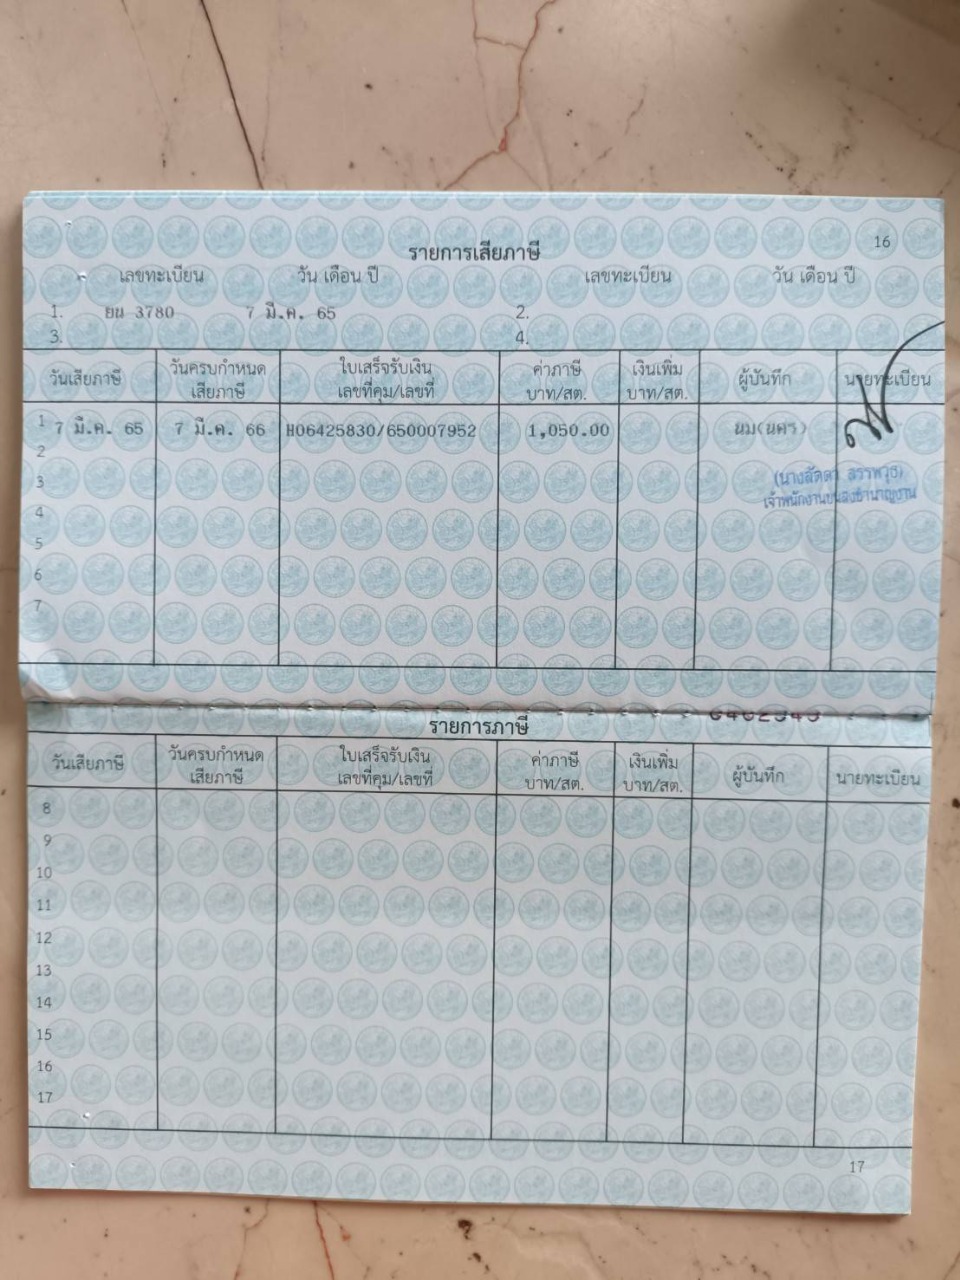 16
รายการเสียภาษี
เลขทะเบียน วัน เดือน ปี เลขทะเบียน วัน เดือน ปี
1. ยน 3780 7 มี.ค. 65 2.
3. 4.
วันเสียภาษี วันครบกำหนดเสียภาษี ใบเสร็จรับเงินเลขที่คุม/เลขที่ ค่าภาษีบาท/สต. เงินเพิ่มบาท/สต. ผู้บันทึก นายทะเบียน
1 7 มี.ค. 65 7 มี.ค. 66 H06425830/650007952 1,050.00 นม(นคร)
2
3
(นางลัดดา สรรพวุธ)
เจ้าพนักงานขนส่งชำนาญงาน
4
5
6
7
รายการภาษี
วันเสียภาษี วันครบกำหนดเสียภาษี ใบเสร็จรับเงินเลขที่คุม/เลขที่ ค่าภาษีบาท/สต. เงินเพิ่มบาท/สต. ผู้บันทึก นายทะเบียน
8
9
10
11
12
13
14
15
16
17
17